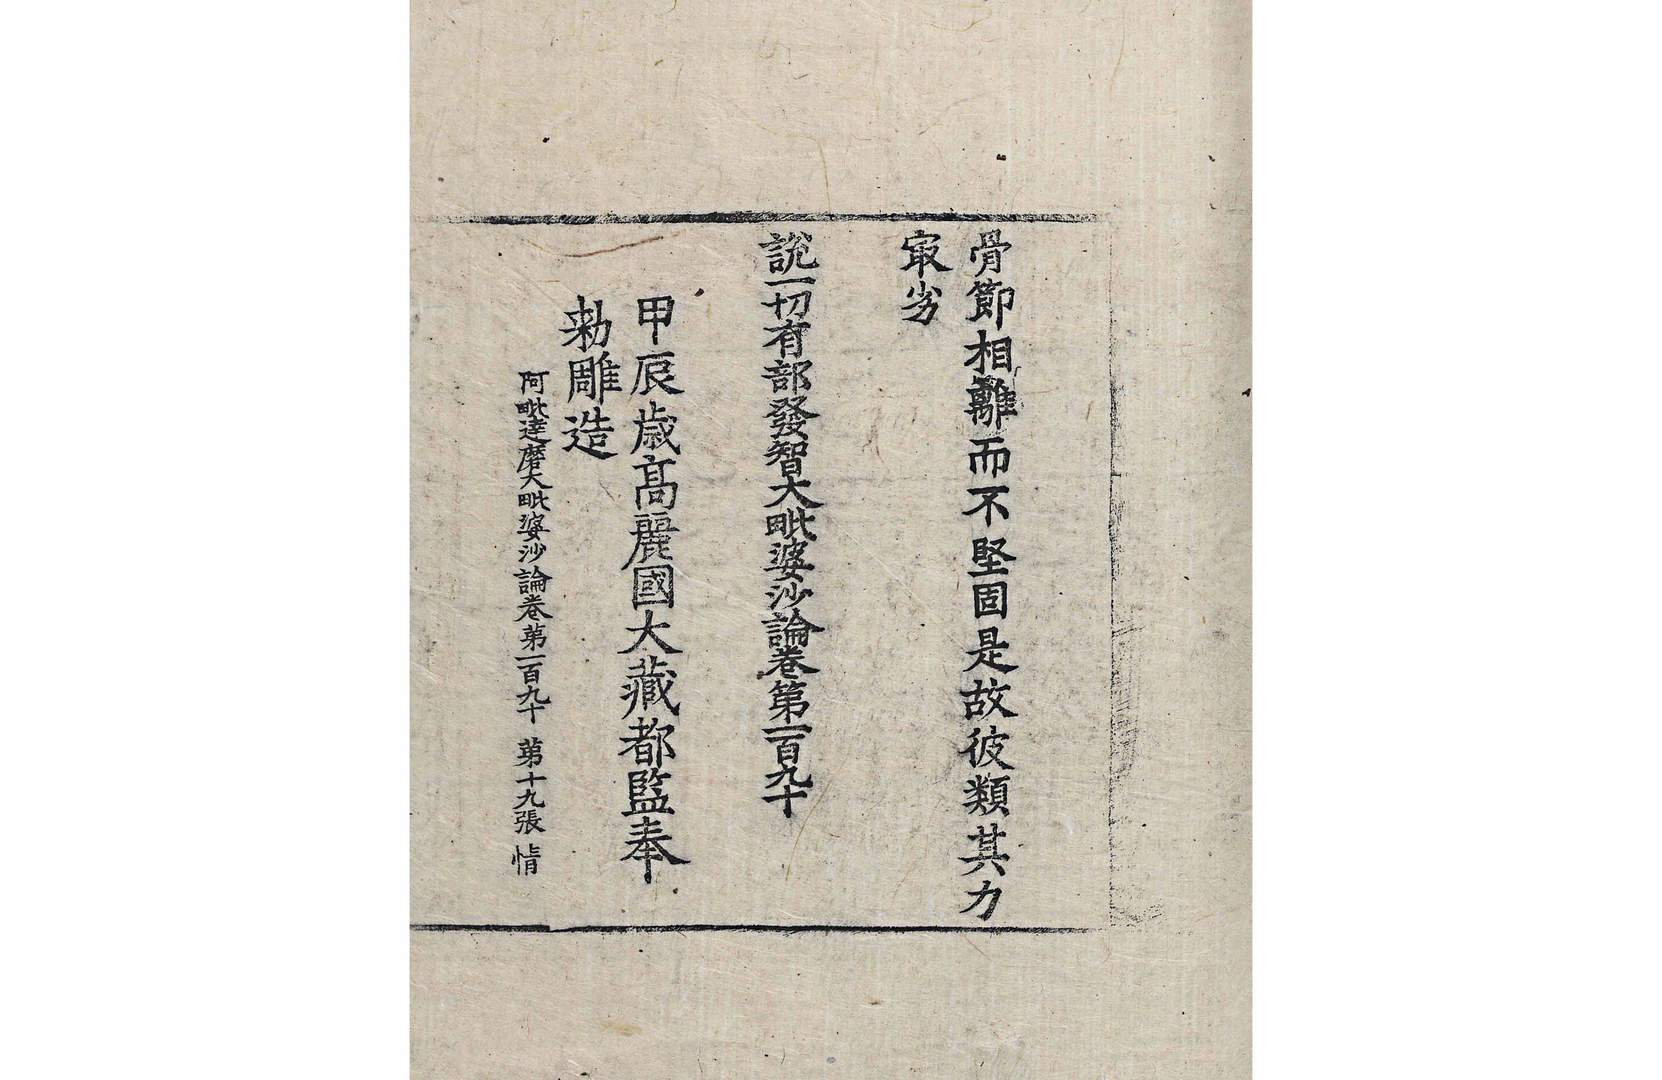 骨節相離而不堅固是故彼類其力
㝡劣
說一切有部發智大毗婆沙論卷第一百九十
甲辰歲高麗國大藏都監奉
勑雕造
阿毗達磨大毗婆沙論卷第一百九十 第十九張 情